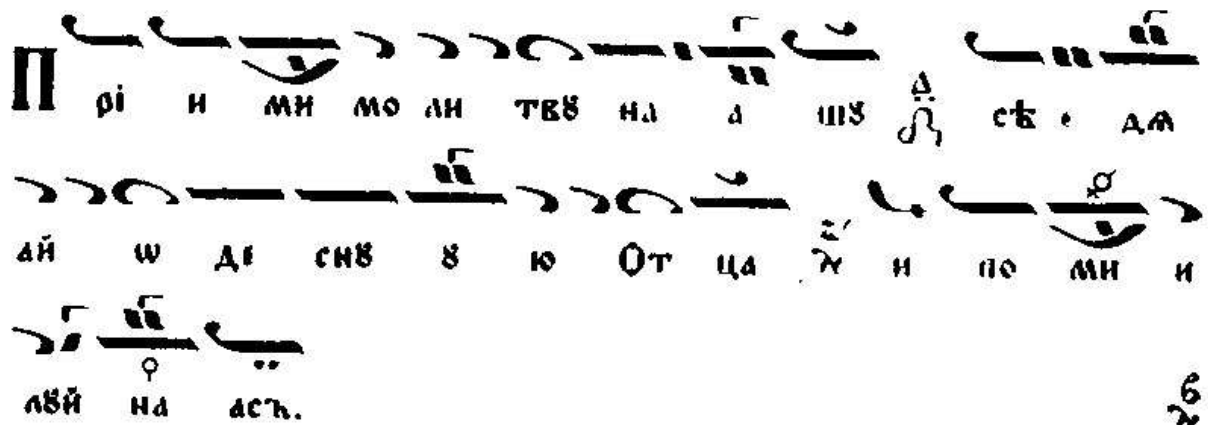 Прі и ми мо ли твꙋ на а шꙋ сѣ е дѧ
ай ѡ де снꙋ ꙋ ю От ца и по ми и
лꙋй на асъ.